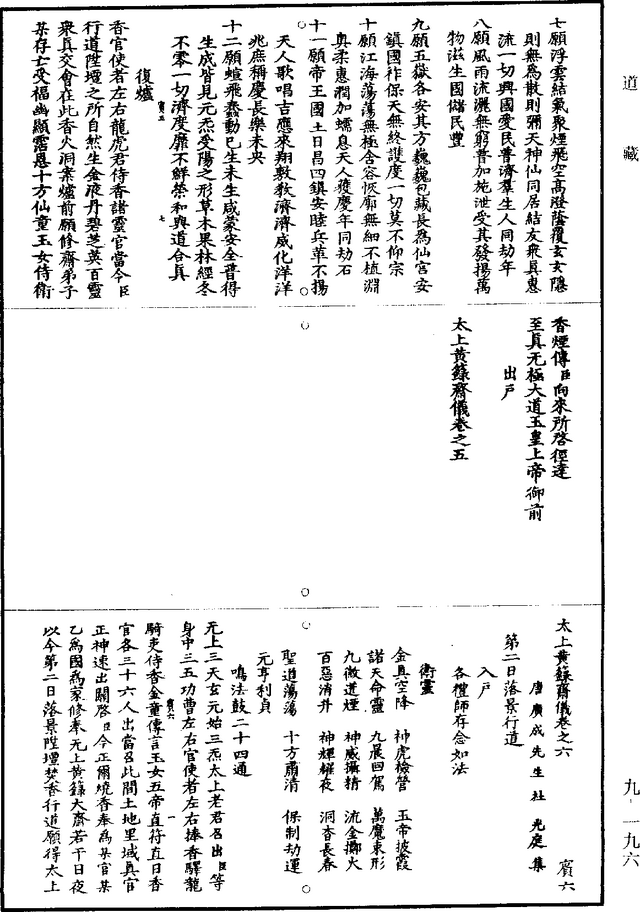 道藏
七願浮雲結氣聚煙飛空高澄蔭覆玄玄隱
則無為散則彌天神仙同居結友衆真惠
流一切興國愛民普濟羣生人同劫年
八願風雨流灑無窮普加施泄受其發揚萬
物滋生國儲民豐
九願五嶽各安其方巍巍包藏長為仙宮安
鎮國祚保天無終護度一切莫不仰宗
十願江海蕩蕩無極含容恢廓無細不植淵
奧柔惠潤加蠕息天人獲慶年同劫石
十一願帝王國土日昌四鎮安睦兵革不揚
天人歌唱吉應來翔敷教濟濟威化洋洋
兆庶稱慶長樂未央
十二願蝖飛蠢動已生未生咸蒙安全普得
生成皆見元炁受陽之形草木果林經冬
不零一切濟度靡不鮮榮和與道合真
賓五
七
復爐
香官使者左右龍虎君侍香諸靈官當令臣
行道陞壇之所自然生金液丹碧芝英百靈
衆真交會在此香火洞案爐前願修齋弟子
某存亡受福幽顯霑恩十方仙童玉女侍衛
香煙傳臣向來所啓徑達
至真无極大道玉皇上帝御前
出戶
太上黃籙齋儀卷之五
太上黃籙齋儀卷之六
賓六
唐廣成先生杜光庭集
第二日落景行道
入戶
各禮師存念如法
衛靈
金真空降 神虎檢營 玉帝披霞
諸天命靈 九晨回駕 萬魔束形
九微道煙 神威攝精 流金擲火
百惡消并 神輝耀夜 洞香長春
聖道蕩蕩 十方肅清 保制劫運
元亨利貞
鳴法鼓二十四通
元上三天玄元始三炁太上老君召出臣等
身中三五功曹左右官使者左右捧香驛龍
賓六
一
騎吏侍香金童傳言玉女五帝直符直日香
官各三十六人出當召此間土地里域真官
正神速出關啓臣今正爾燒香奉為某官某
乙為國為家修奉无上黃籙大齋若干日夜
以今第二日落景陞壇焚香行道願得太上
九-一九六